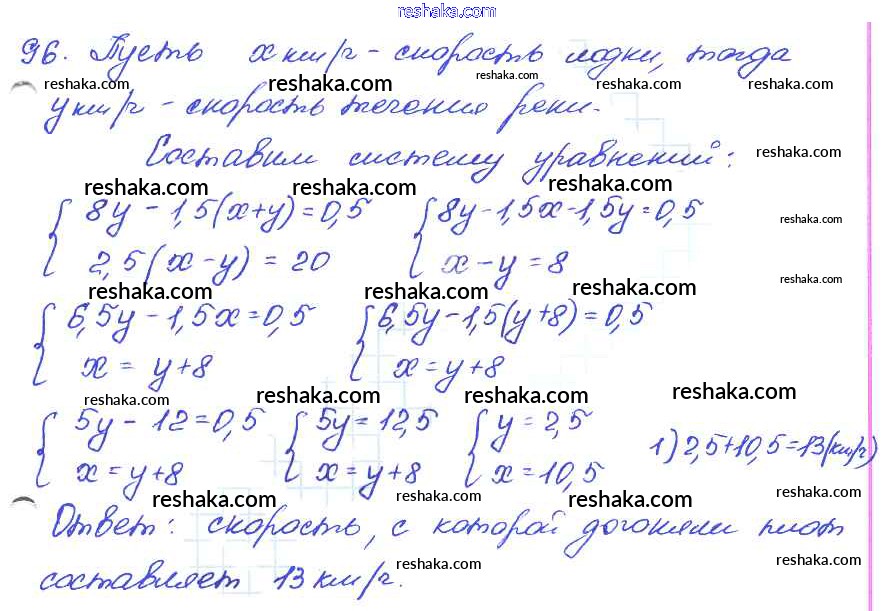 reshaka.com
96. Пусть x км/ч - скорость лодки, тогда
reshaka.com reshaka.com reshaka.com reshaka.com reshaka.com
y км/ч - скорость течения реки.
Составим систему уравнений: reshaka.com
reshaka.com reshaka.com reshaka.com
8y - 1,5(x+y) = 0,5 8y - 1,5x - 1,5y = 0,5 reshaka.com
2,5(x-y) = 20 x - y = 8 reshaka.com
reshaka.com reshaka.com reshaka.com
6,5y - 1,5x = 0,5 6,5y - 1,5(y+8) = 0,5
x = y+8 x = y+8
reshaka.com reshaka.com reshaka.com reshaka.com
5y - 12 = 0,5 5y = 12,5 y = 2,5 1) 2,5+10,5=13(км/ч)
x = y+8 x = y+8 x = 10,5
reshaka.com reshaka.com reshaka.com reshaka.com
Ответ: скорость, с которой догоняли плот
reshaka.com reshaka.com
составляет 13 км/ч.